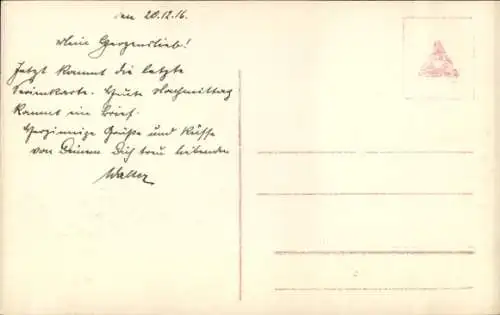 den 20.12.16.
Mein Herzenslieb!
Jetzt kommt die letzte
Serienkarte. Heute Nachmittag
kommt ein Brief.
Herzinnige Grüße und Küsse
von Deinem Dich treu liebenden
Walter